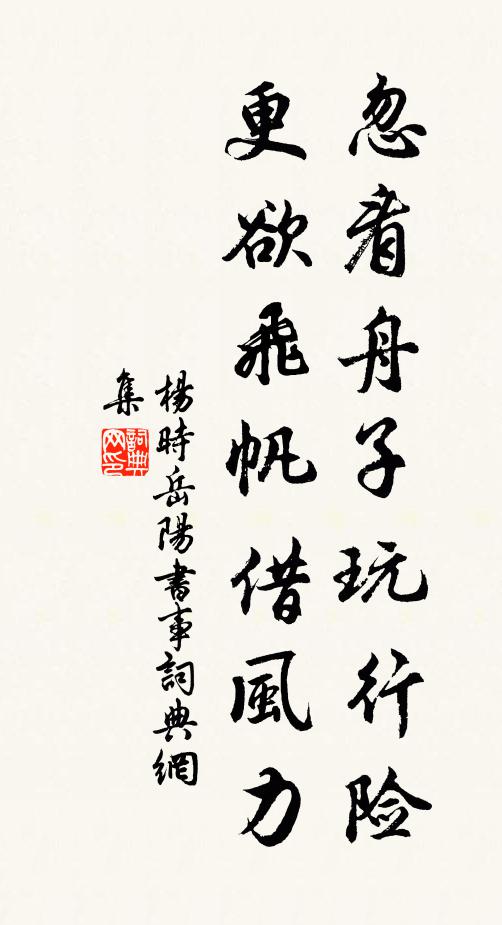 忽看舟子玩行险
更欲飛帆借風力
楊時岳陽書事詞典網
集
詞典
网印